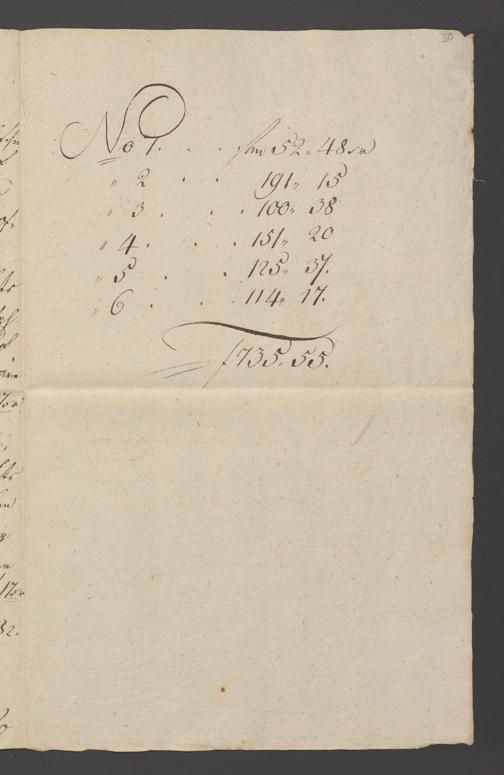 30
No 1. . . fl 52 „ 48 xr
„ 2 . . 191 „ 15
„ 3 . . . 100 „ 38
„ 4 . . . 151 „ 20
„ 5 . . 125 „ 37.
„ 6 . . . 114 „ 17.
f 735 „ 55.